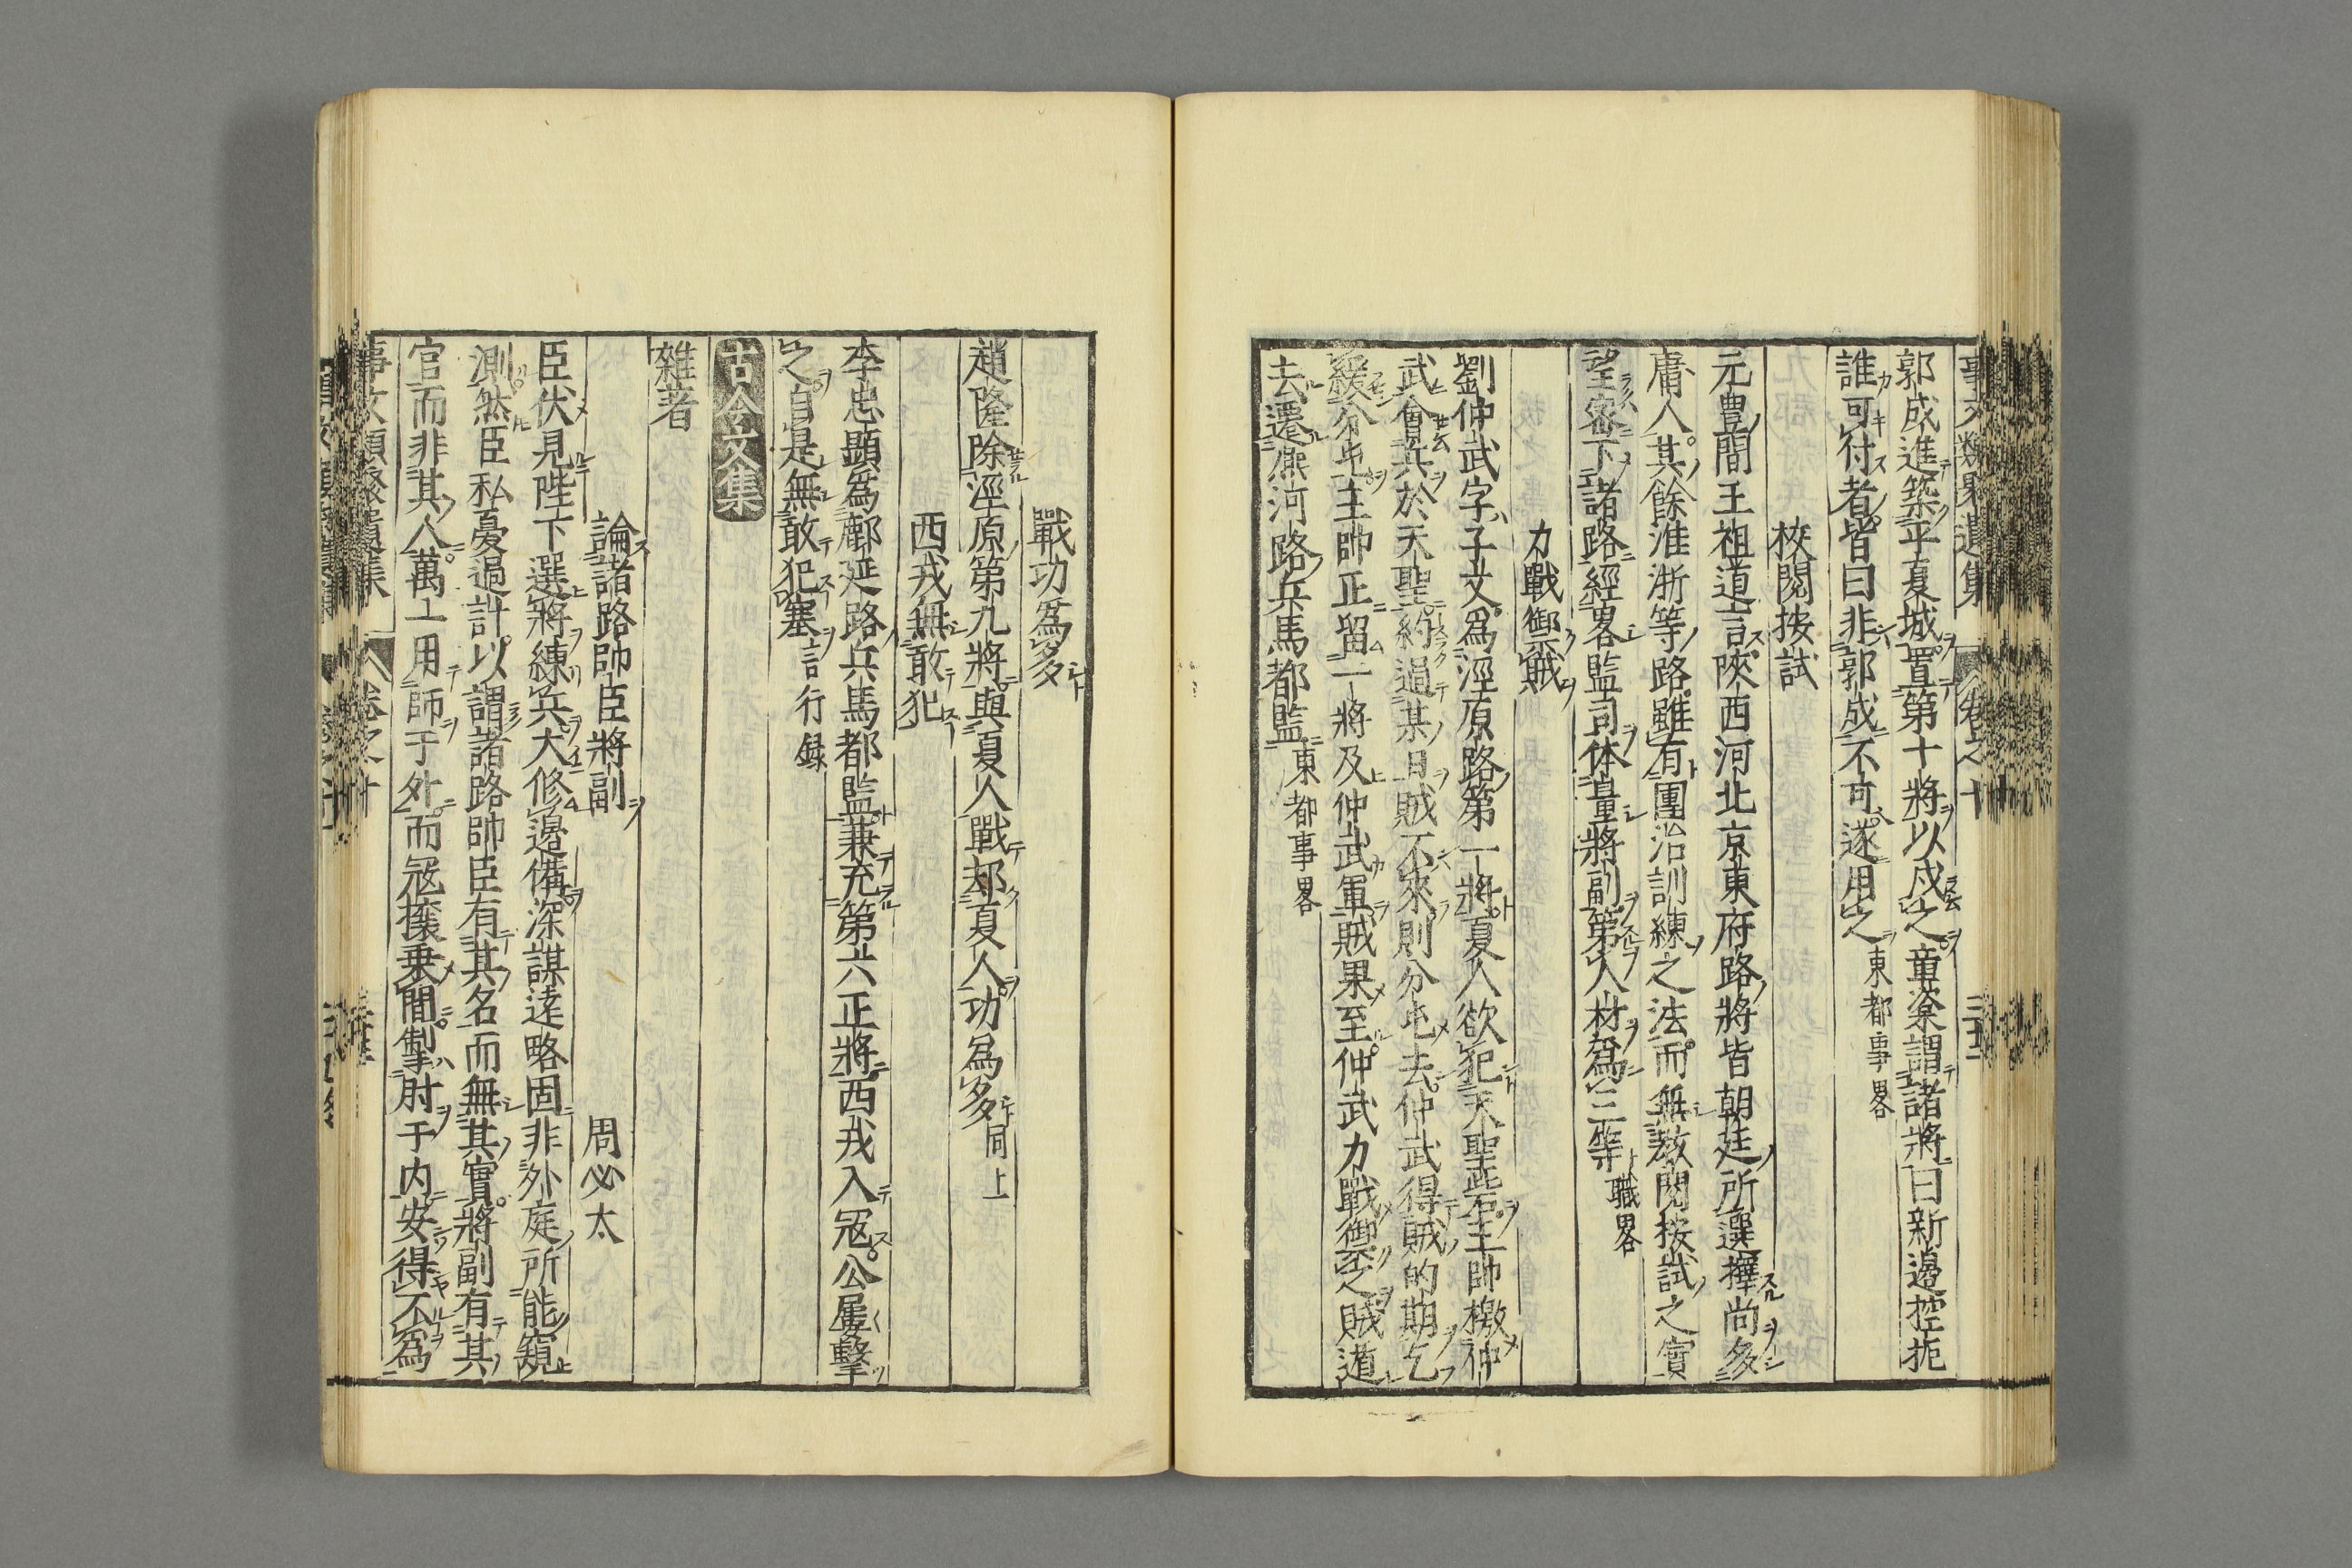 郭成進築平夏城置第十將以戍之章楶謂諸將曰新邊控扼
誰可付者皆曰非郭成不可遂用之東都事畧
校閱按試
元豊間王祖道言陝西河北京東府路將皆朝廷所選擇尚多
庸人其餘淮浙等路雖有團治訓練之法而無教閱按試之實
望密下諸路經畧監司体量將副第人材爲三等職畧
力戰禦賊
劉仲武字子文爲涇原路第一將夏人欲犯天聖砦主帥檄仲
武會兵於天聖約過某日賊不來則分屯去仲武得賊的期乞
緩分屯主帥正留一將及仲武軍賊果至仲武力戰禦之賊遁
去遷熈河路兵馬都監東都事畧
戰功爲多
趙隆除涇原第九將與夏人戰却夏人功爲多同上
西戎無敢犯
李忠顯爲鄜延路兵馬都監兼充第六正將西戎入冦公屢擊
之自是無敢犯塞言行録
古今文集
雜著
論諸路帥臣將副　周必大
臣伏見陛下選將練兵大修邊備深謀逺略固非外庭所能窺
測然臣私憂過計以謂諸路帥臣有其名而無其實將副有其
官而非其人萬一用師于外而冦攘乗間掣肘于内安得不爲